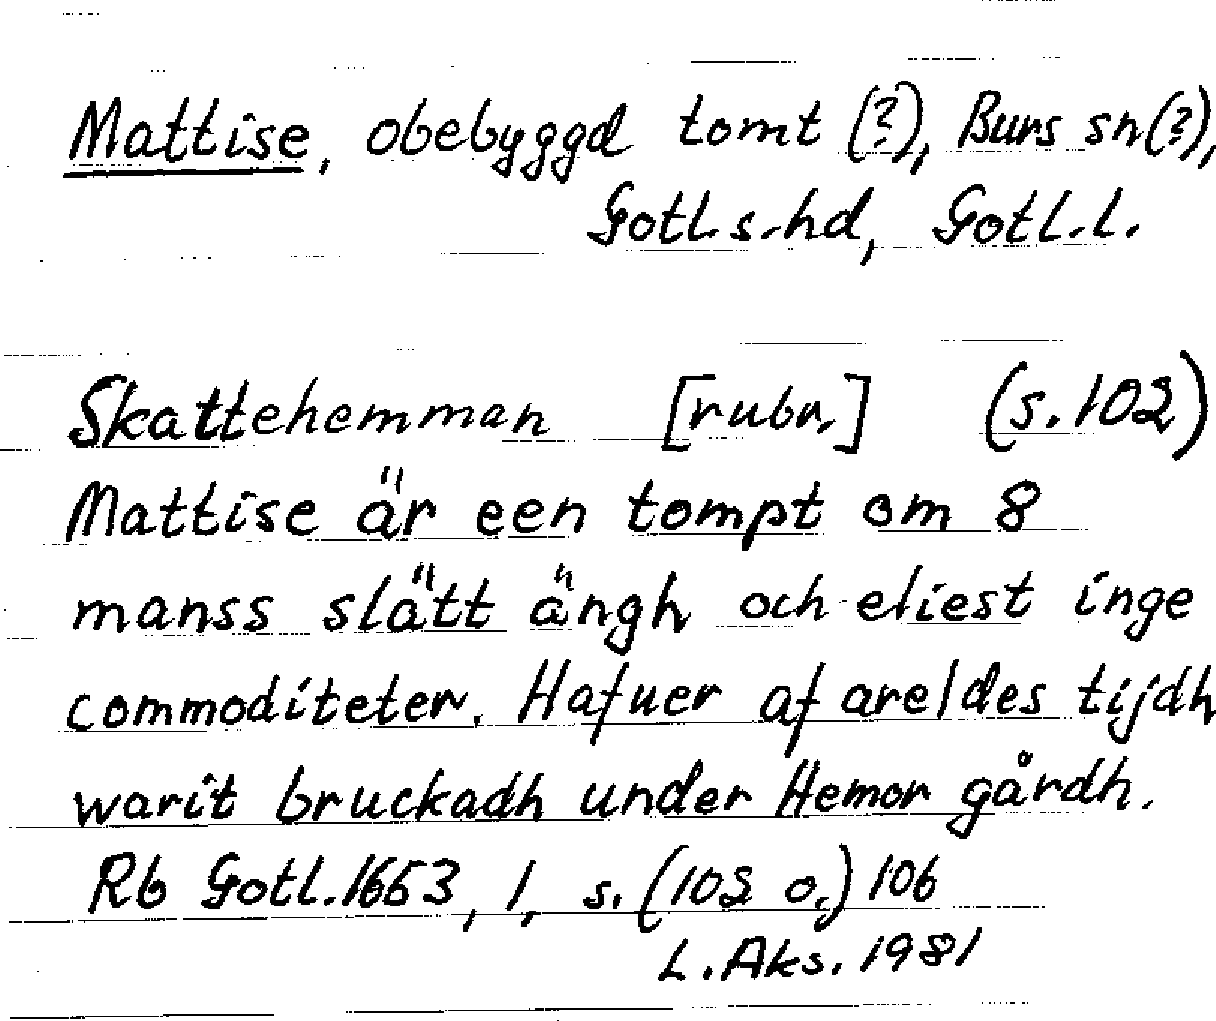 Mattise, obebyggd tomt (?), Burs sn(?),
Gotl.s.hd, Gotl.l.
Skattehemman [rubr.] (s.102)
Mattise är een tompt om 8
manss slätt ängh och eliest inge
commoditeter. Hafuer af areldes tijdh
warit bruckadh under Hemor gårdh.
Rb Gotl.1653, 1, s. (102 o.) 106
L. Aks. 1981